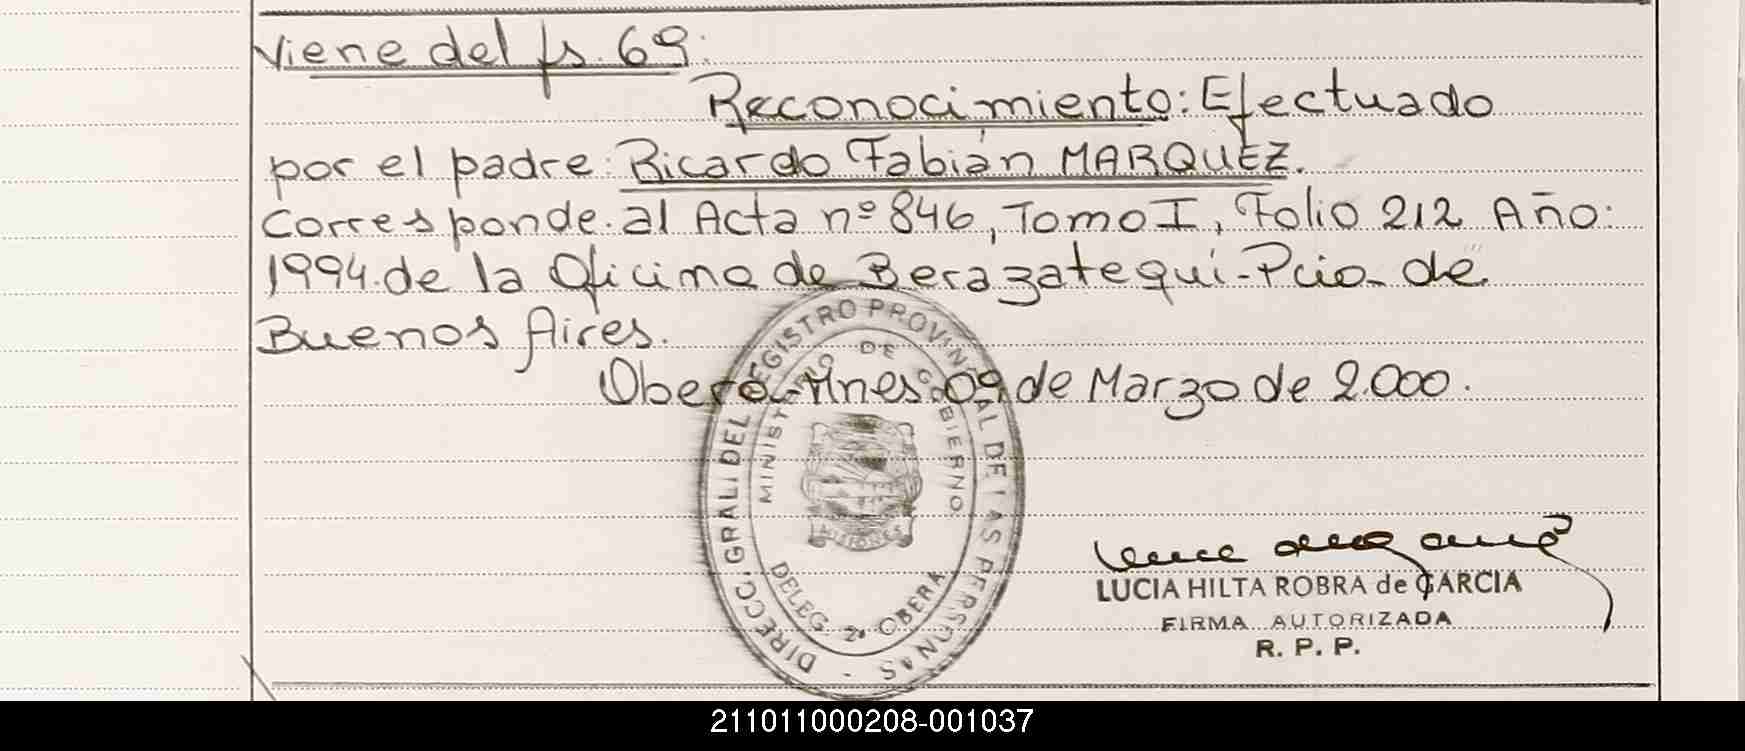 Viene del fs. 69:
Reconocimiento: Efectuado
por el padre: Ricardo Fabián MARQUEZ.
Corresponde al Acta nº 846, Tomo I, Folio 212 Año:
1994 de la Oficina de Berazategui - Pcia. de
Buenos Aires.
Oberá - Mnes. 09 de Marzo de 2.000.
DIRECC. GRAL. DEL REGISTRO PROVINCIAL DE LAS PERSONAS -
MINISTERIO DE GOBIERNO
MISIONES
DELEG. 2ª OBERA
LUCIA HILTA ROBRA de GARCIA
FIRMA AUTORIZADA
R. P. P.
211011000208-001037